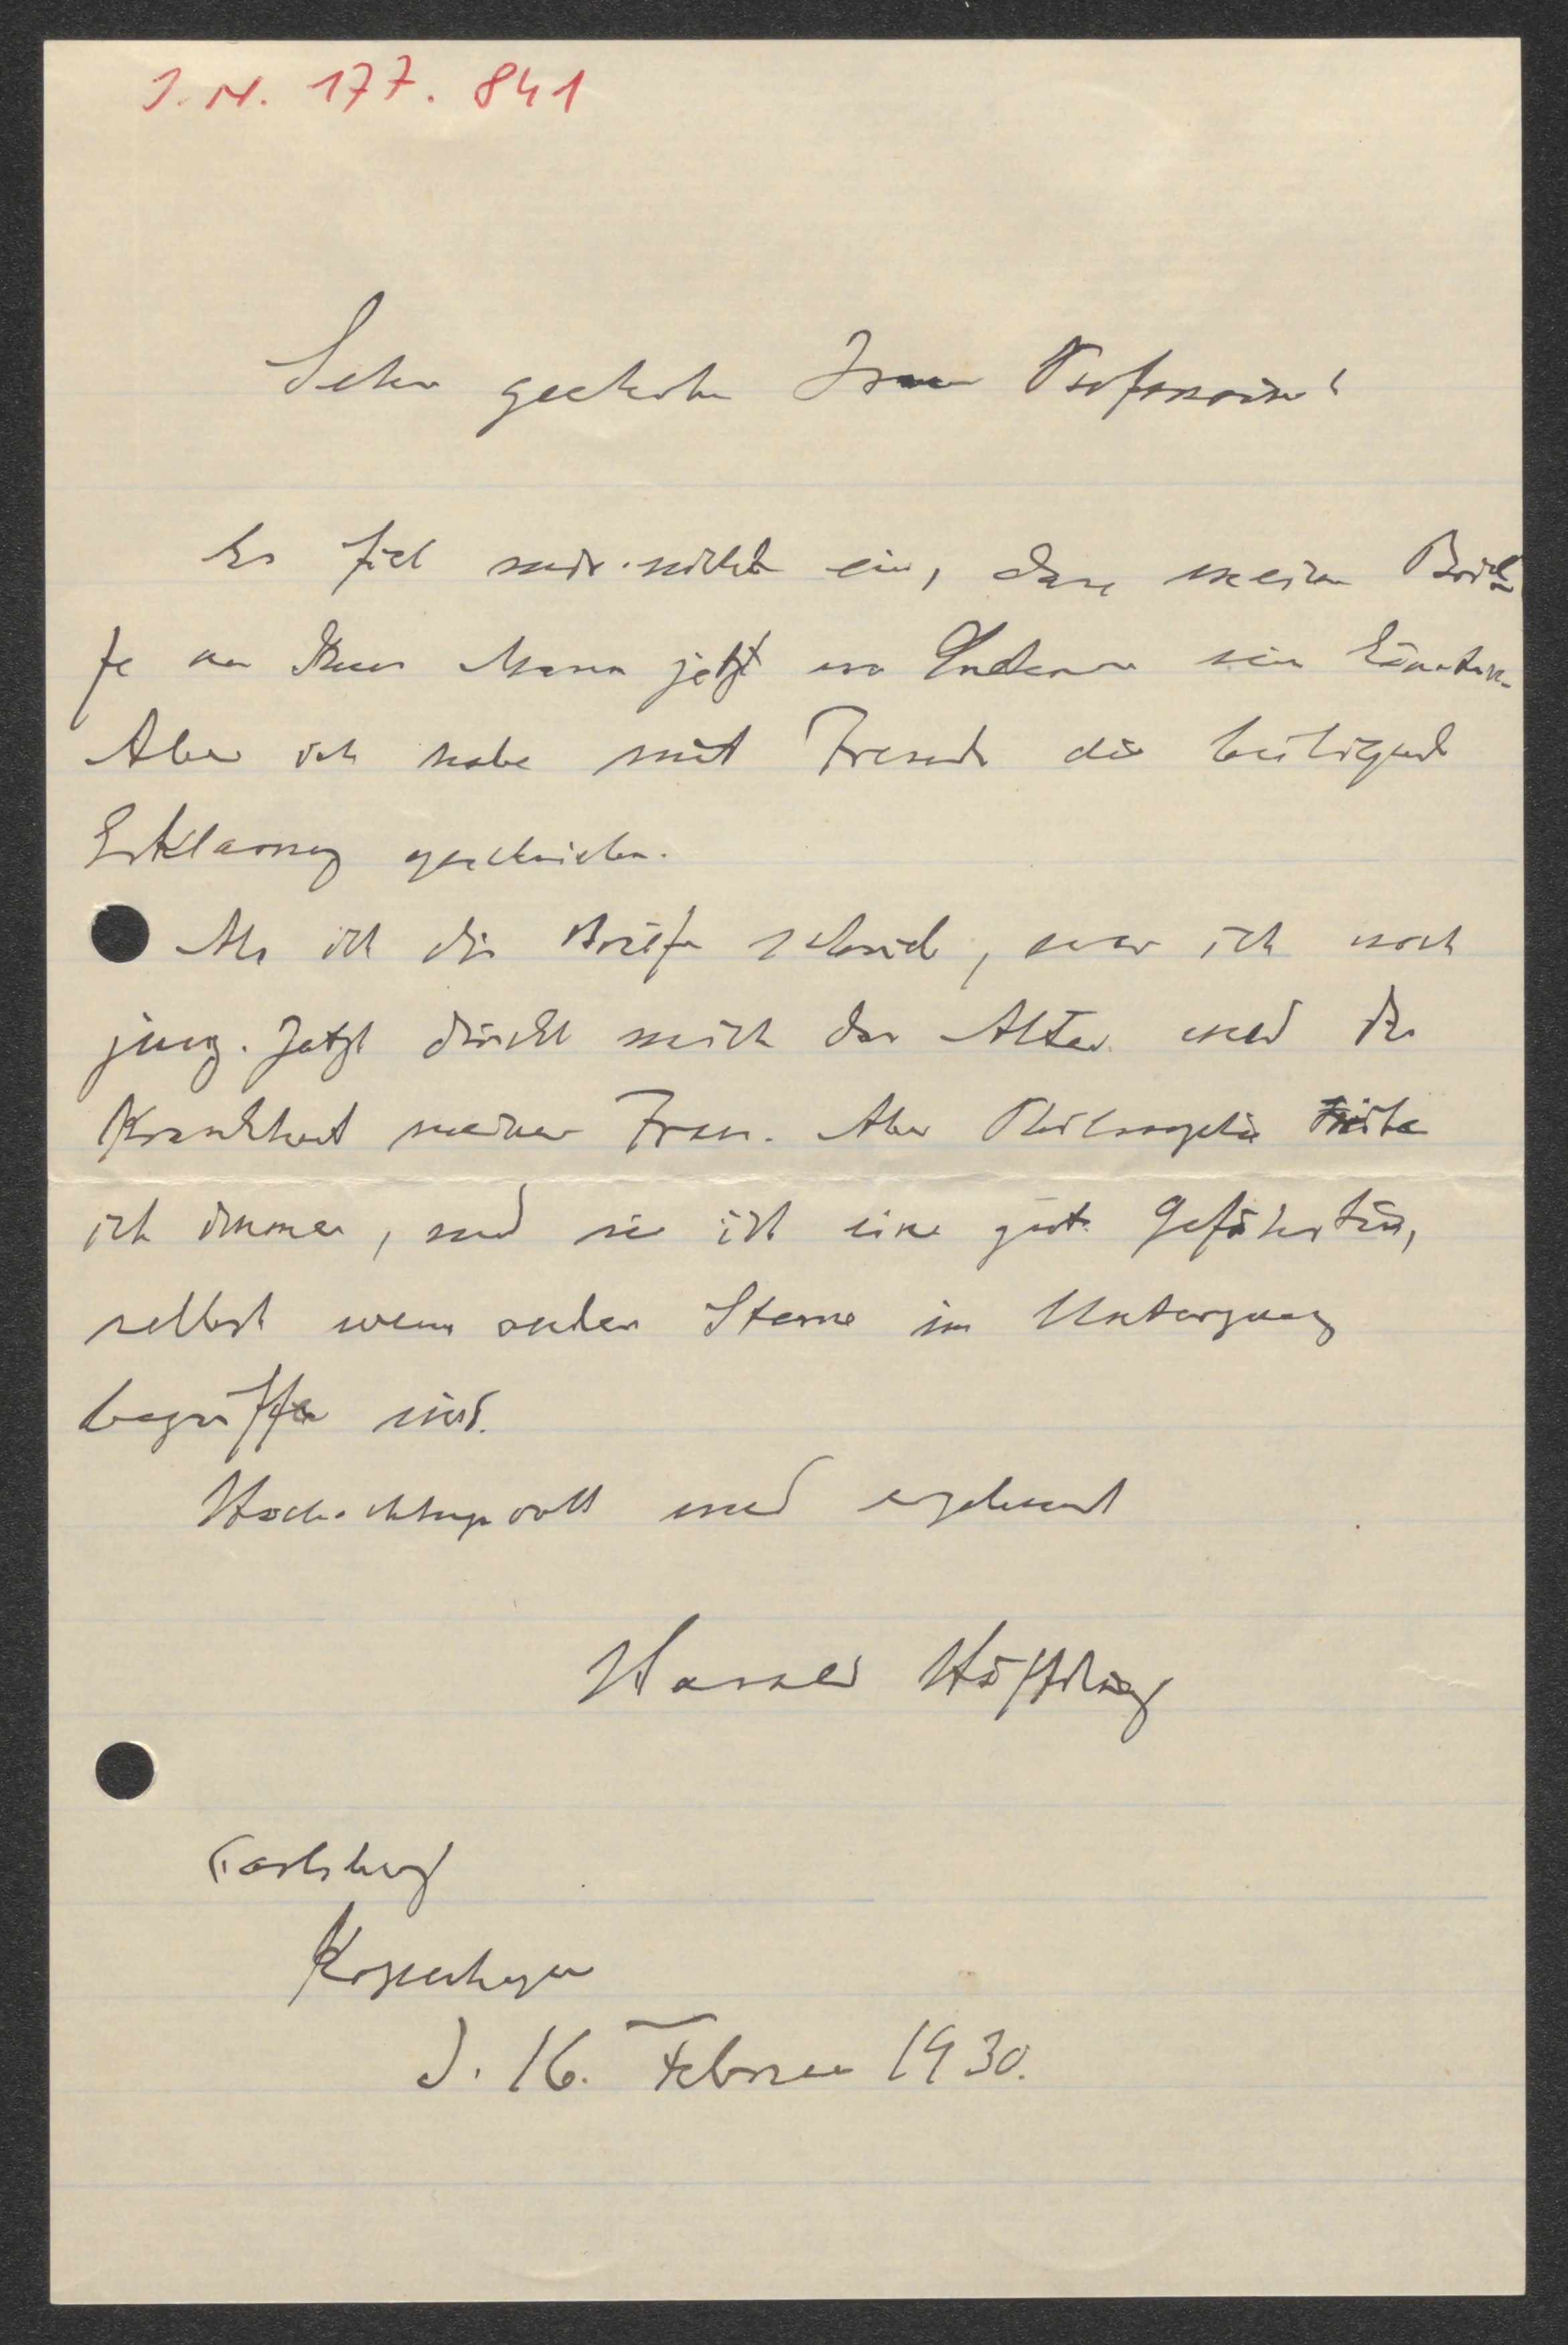 J. N. 177.841
Sehr geehrte Frau Professorin!
Es fiel mir nicht ein, dass meine Brie-
fe an Ihren Mann jetzt von
Aber ich habe mit Freude die beiligende
Erklarung geschrieben.
Als ich die Briefe schrieb, war ich noch
jung. Jetzt drückt mich das Alter und die
Krankheit meiner Frau. Aber Philosophie treibe
ich immer, und sie ist eine gute Gefährtin,
selbst wenn andere Sterne im Untergang
begriffen sind.
Hochachtungsvoll und ergebenst
Harald Höffding
Carlsberg
Kopenhagen
d. 16. Februar 1930.